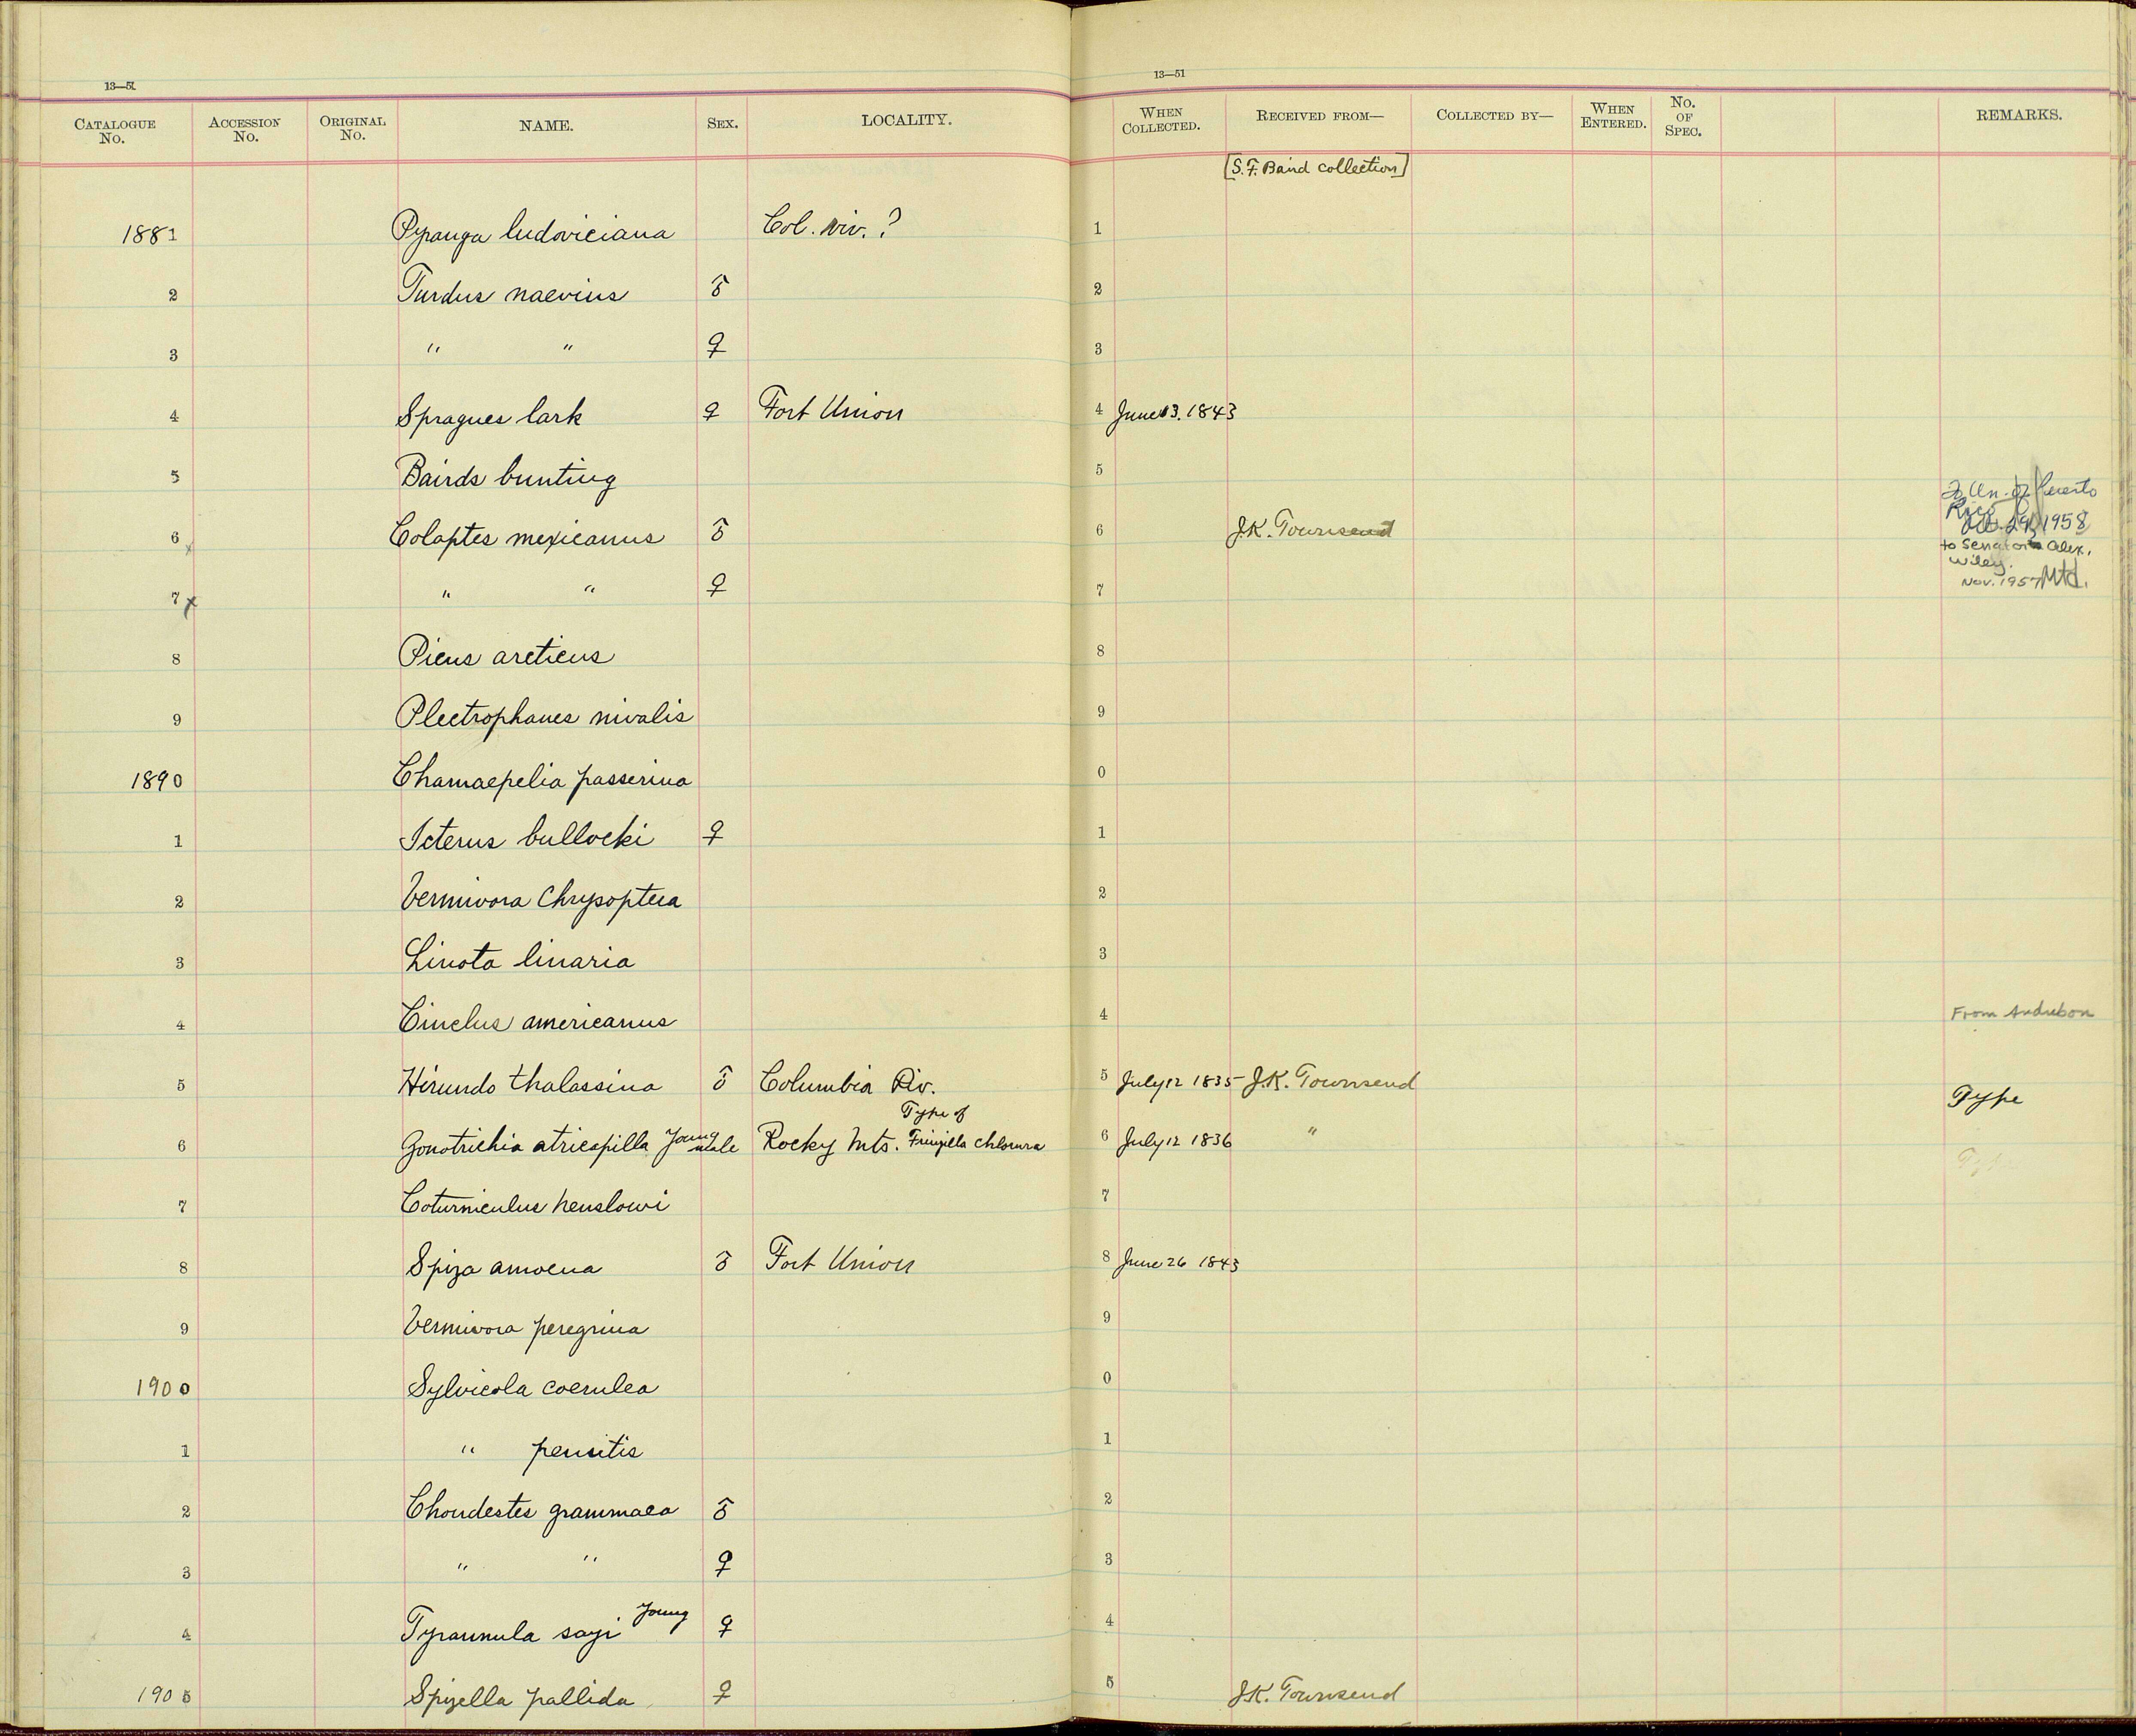 13—51
13—51
CATALOGUE No. ACCESSION No. ORIGINAL No. NAME. SEX. LOCALITY. WHEN COLLECTED. RECEIVED FROM— COLLECTED BY— WHEN ENTERED. No. OF SPEC. REMARKS.
[S.F. Baird collection]
1881 Pyranga ludoviciana Col. riv. ? 1
2 Turdus naevius ♂ 2
3 " " ♀ 3
4 Spragues lark ♀ Fort Union 4 June 13. 1843
5 Bairds bunting 5
To Un. of Puerto
Rico
1958
6 Colaptes mexicanus ♂ 6 J.K. Townsend
to Senator Alex.
Wiley.
Nov. 1957 Mtd.
7 x " " ♀ 7
8 Picus arcticus 8
9 Plectrophanes nivalis 9
1890 Chamaepelia passerina 0
1 Icterus bullocki ♀ 1
2 Vermivora chrysoptera 2
3 Linota linaria 3
4 Cinclus americanus 4 From Audubon
5 Hirundo thalassina ♂ Columbia Riv. 5 July 12 1835 J.K. Townsend Type
6 Zonotrichia atricapilla Young male Rocky Mts. Type of Fringilla chlorura 6 July 12 1836 "
7 Coturniculus henslowi 7
8 Spiza amoena ♂ Fort Union 8 June 26 1843
9 Vermivora peregrina 9
1900 Sylvicola coerulea 0
1 " pensitis 1
2 Chondestes grammaca ♂ 2
3 " " ♀ 3
4 Tyrannula sayi Young ♀ 4
1905 Spizella pallida ♀ 5 J.K. Townsend